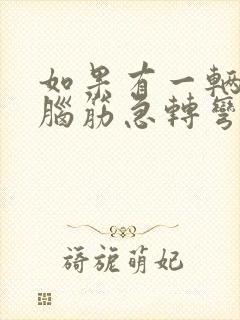 如果有一輛
腦筋急轉彎
旖旎萌妃